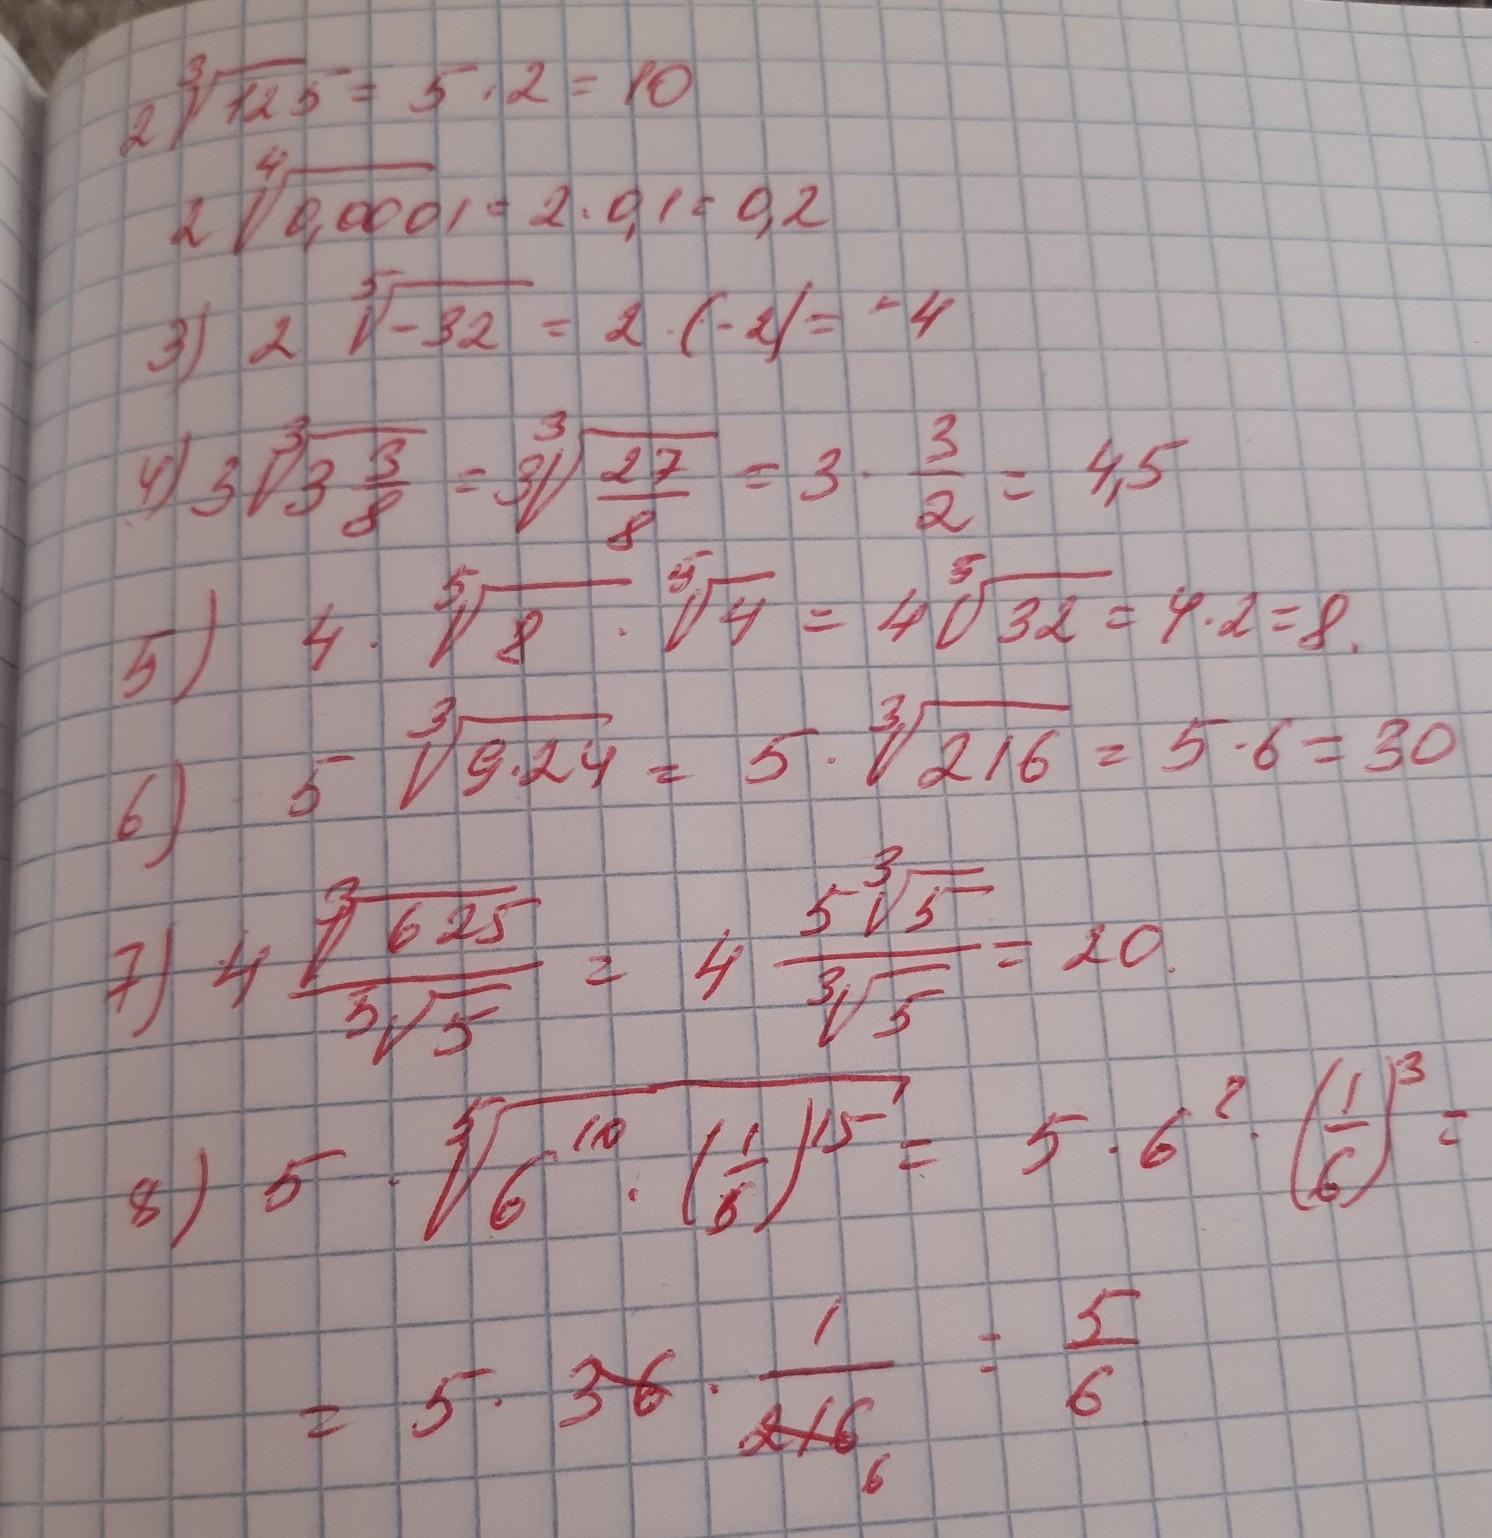 2∛125 = 5 · 2 = 10
2∜0,0001 = 2 · 0,1 = 0,2
3) 2 ⁵√-32 = 2 · (-2) = -4
4) 3 ∛(3 3/8) = 3 ∛(27/8) = 3 · 3/2 = 4,5
5) 4 · ⁵√8 · ⁵√4 = 4 ⁵√32 = 4 · 2 = 8.
6) 5 ∛(9·24) = 5 · ∛216 = 5 · 6 = 30
7) 4 ∛625 / ³√5 = 4 5∛5 / ∛5 = 20.
8) 5 · ⁵√(6¹⁰ · (1/6)¹⁵) = 5 · 6² · (1/6)³ =
= 5 · 36 · 1/216 6 = 5/6